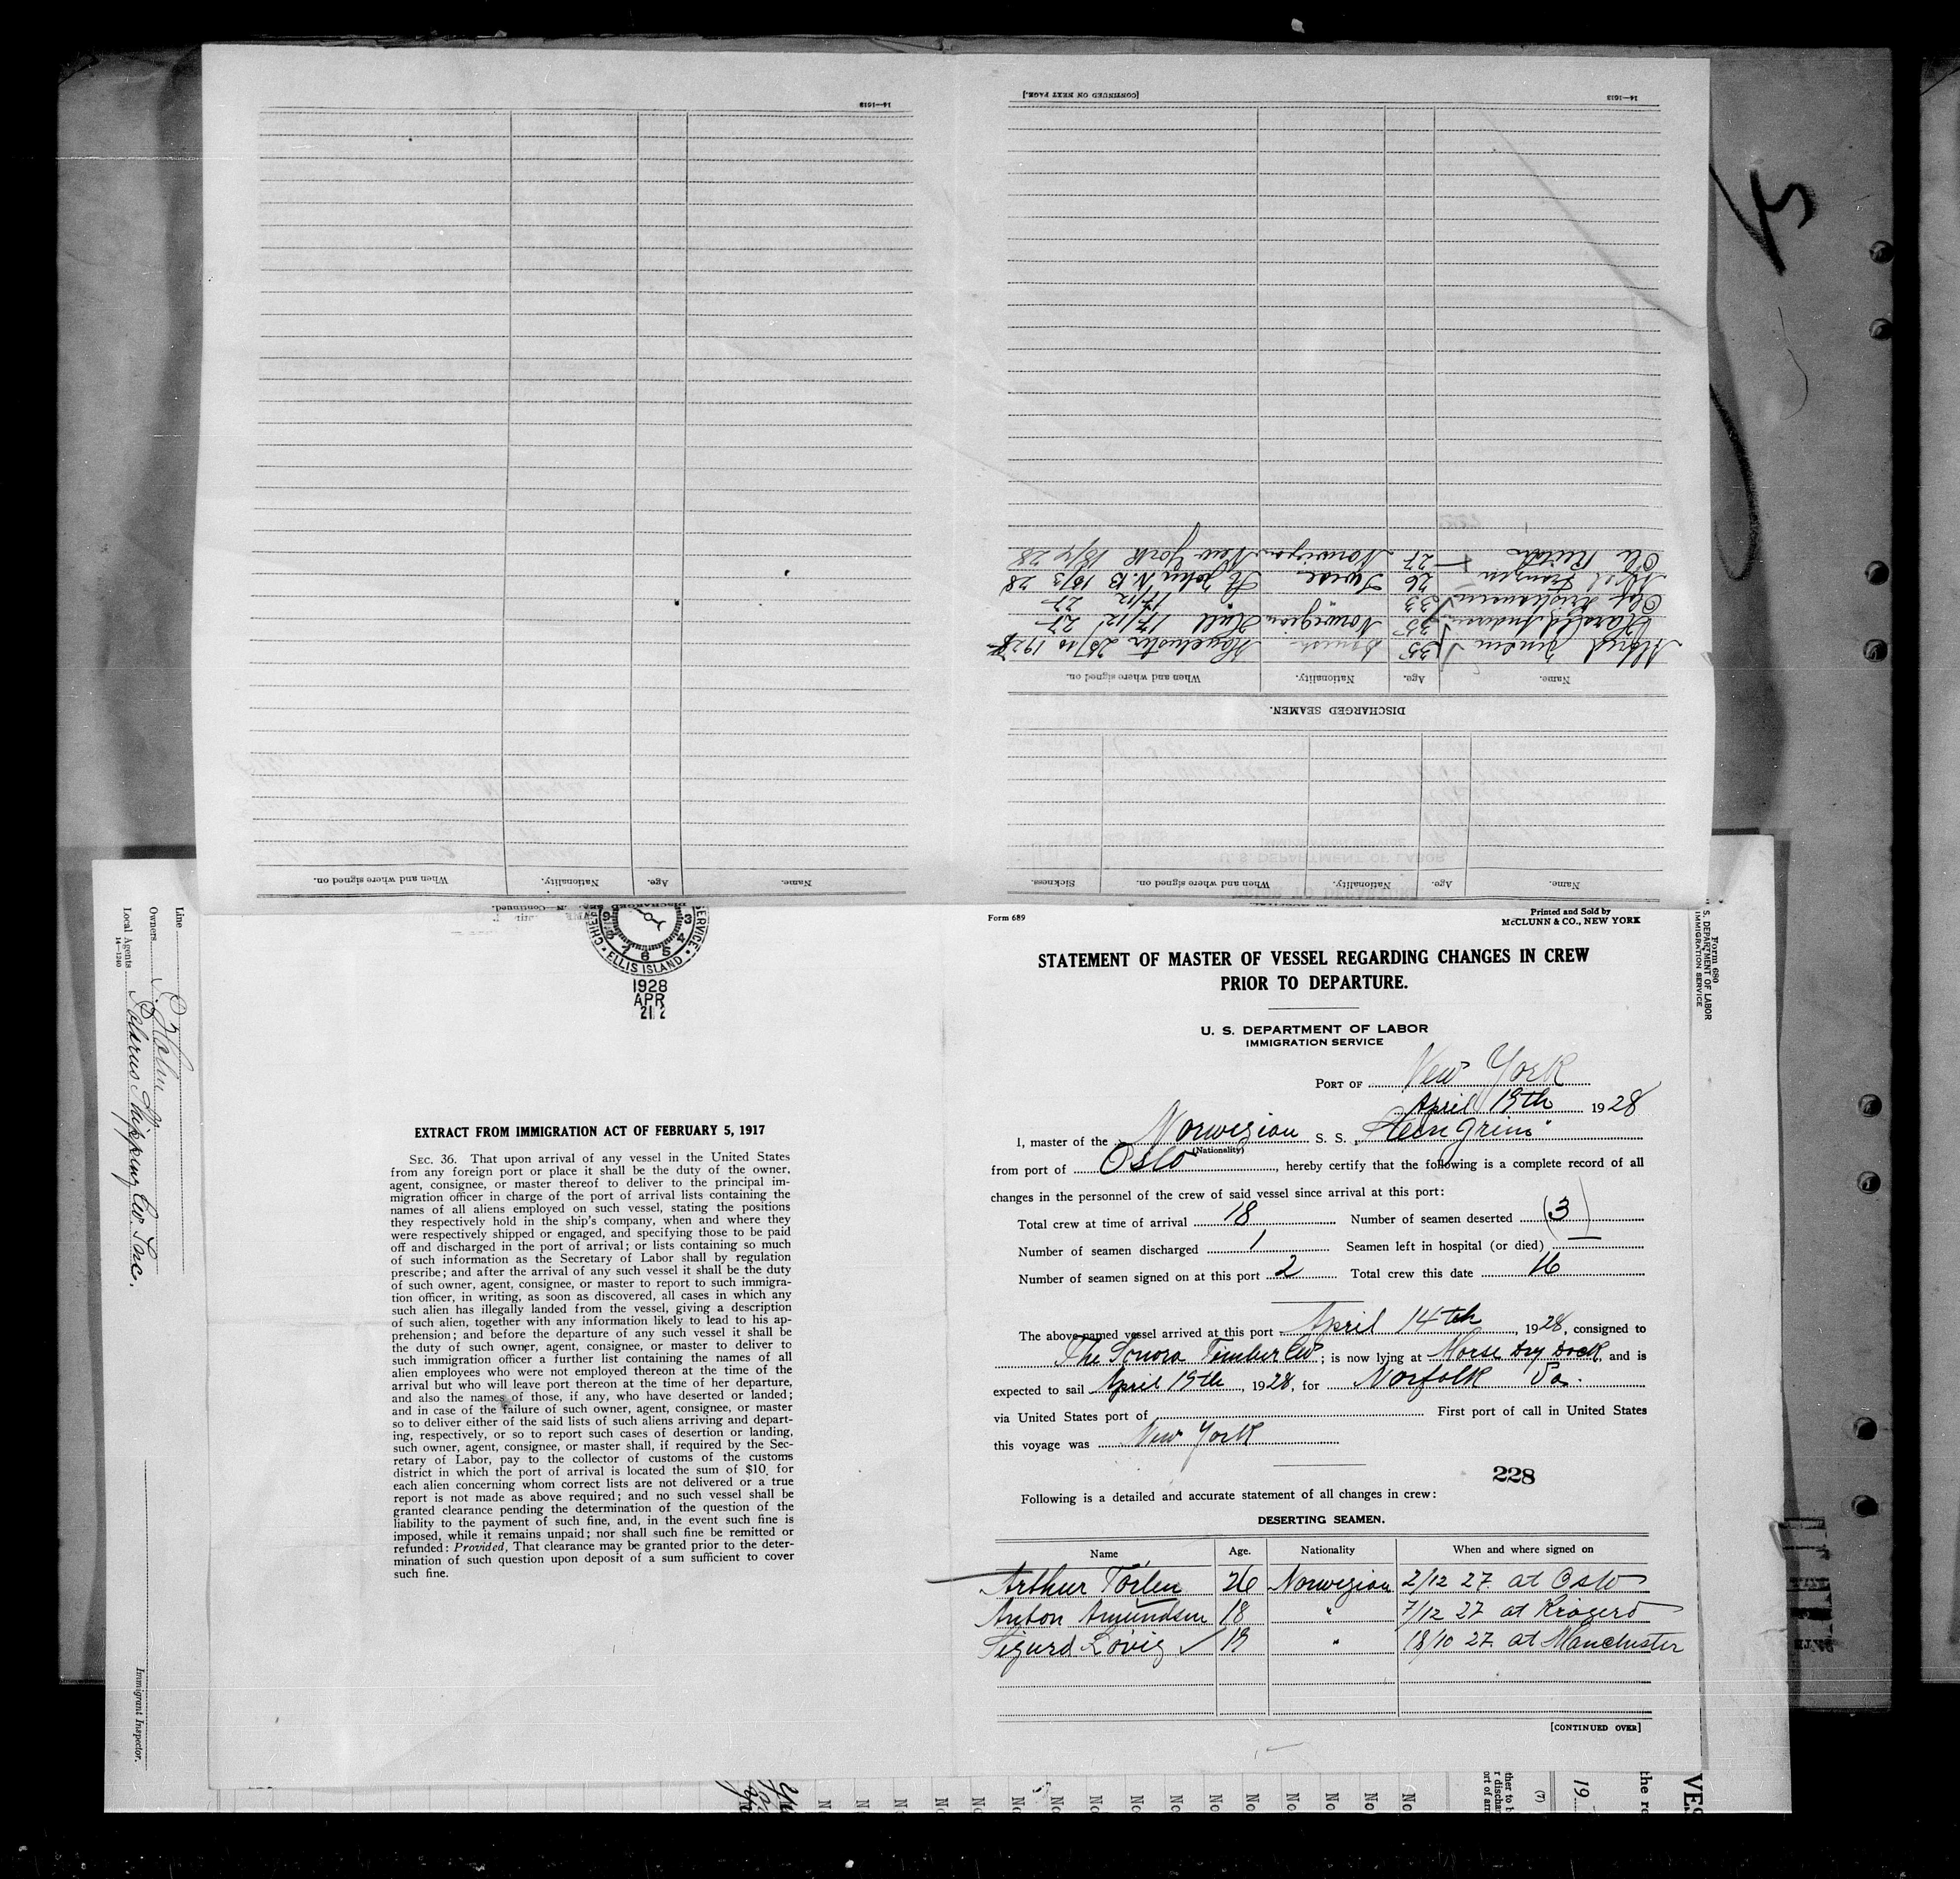 [CONTINUED ON NEXT PAGE.]
14—1613
14—1613
Ole 27 Norwegian New York 18/4 28
Axel Franzen 26 Swede St John N.B 16/3 28
Olaf Kristiansen 33 " 17/12 27
Harald Andersen 35 Norwegian Hull 17/12 27
Jensen 35 Danish 25/10 1927
Name. Age. Nationality. When and where signed on.
DISCHARGED SEAMEN.
Name. Age. Nationality. When and where signed on. Sickness.
Name. Age. Nationality. When and where signed on.
Line
Owners
Local Agents Shipping Co. Inc.
14—1240
Immigrant Inspector.
ELLIS ISLAND
1928
APR
21 2
EXTRACT FROM IMMIGRATION ACT OF FEBRUARY 5, 1917
SEC. 36. That upon arrival of any vessel in the United States
from any foreign port or place it shall be the duty of the owner,
agent, consignee, or master thereof to deliver to the principal im-
migration officer in charge of the port of arrival lists containing the
names of all aliens employed on such vessel, stating the positions
they respectively hold in the ship's company, when and where they
were respectively shipped or engaged, and specifying those to be paid
off and discharged in the port of arrival; or lists containing so much
of such information as the Secretary of Labor shall by regulation
prescribe; and after the arrival of any such vessel it shall be the duty
of such owner, agent, consignee, or master to report to such immigra-
tion officer, in writing, as soon as discovered, all cases in which any
such alien has illegally landed from the vessel, giving a description
of such alien, together with any information likely to lead to his ap-
prehension; and before the departure of any such vessel it shall be
the duty of such owner, agent, consignee, or master to deliver to
such immigration officer a further list containing the names of all
alien employees who were not employed thereon at the time of the
arrival but who will leave port thereon at the time of her departure,
and also the names of those, if any, who have deserted or landed;
and in case of the failure of such owner, agent, consignee, or master
so to deliver either of the said lists of such aliens arriving and depart-
ing, respectively, or so to report such cases of desertion or landing,
such owner, agent, consignee, or master shall, if required by the Sec-
retary of Labor, pay to the collector of customs of the customs
district in which the port of arrival is located the sum of $10 for
each alien concerning whom correct lists are not delivered or a true
report is not made as above required; and no such vessel shall be
granted clearance pending the determination of the question of the
liability to the payment of such fine, and, in the event such fine is
imposed, while it remains unpaid; nor shall such fine be remitted or
refunded: Provided, That clearance may be granted prior to the deter-
mination of such question upon deposit of a sum sufficient to cover
such fine.
Form 689
Printed and Sold by
McCLUNN & CO., NEW YORK
STATEMENT OF MASTER OF VESSEL REGARDING CHANGES IN CREW
PRIOR TO DEPARTURE.
U. S. DEPARTMENT OF LABOR
IMMIGRATION SERVICE
PORT OF New York
April 19th 1928
I, master of the Norwegian S. S. "Steingrim"
(Nationality)
from port of Oslo, hereby certify that the following is a complete record of all
changes in the personnel of the crew of said vessel since arrival at this port:
Total crew at time of arrival 18 Number of seamen deserted (3)
Number of seamen discharged 1 Seamen left in hospital (or died) —
Number of seamen signed on at this port 2 Total crew this date 16
The above-named vessel arrived at this port April 14th, 1928, consigned to
The Sonora Timber Co; is now lying at Morse Dry Dock, and is
expected to sail April 19th, 1928, for Norfolk Va.
via United States port of First port of call in United States
this voyage was New York
228
Following is a detailed and accurate statement of all changes in crew:
DESERTING SEAMEN.
Name Age. Nationality When and where signed on
Arthur Torlen 26 Norwegian 2/12 27 at Oslo
Anton Amundsen 18 " 7/12 27 at Kragerö
Sigurd Lövig 19 " 18/10 27 at Manchester
[CONTINUED OVER]
Form 680
U. S. DEPARTMENT OF LABOR
IMMIGRATION SERVICE
No No No No No No No No
(7)
19
VES